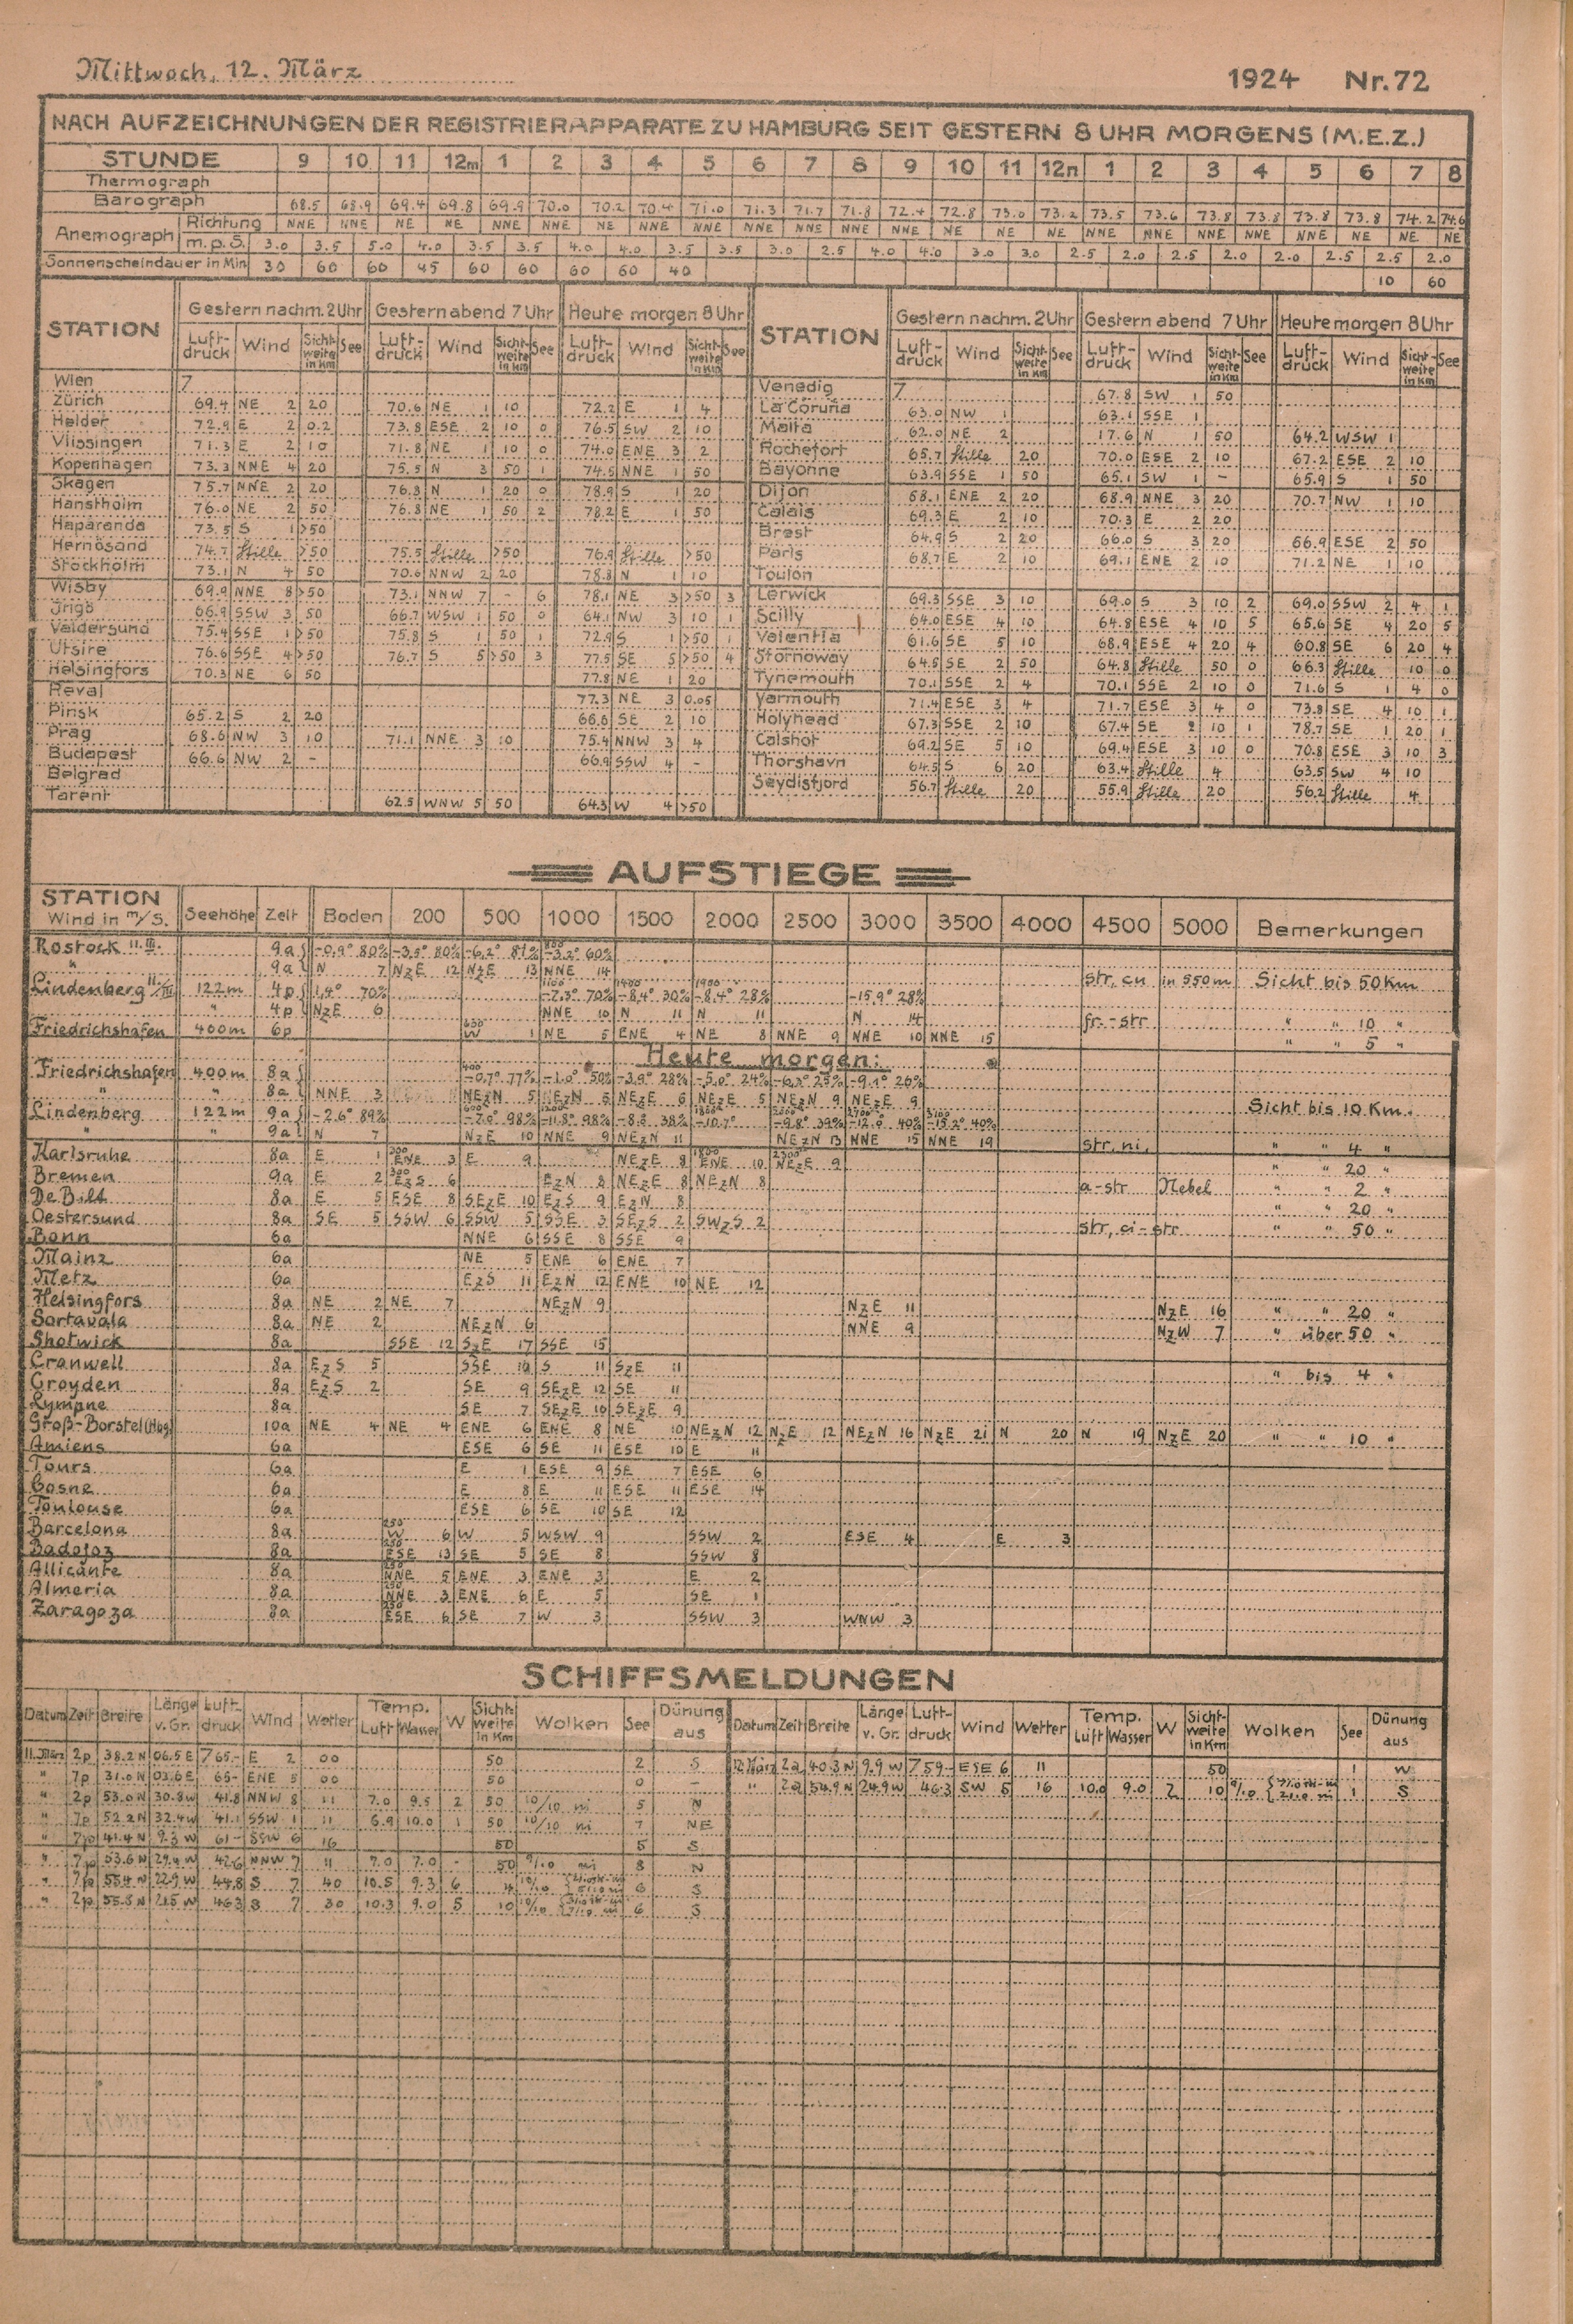 Mittwoch, 12. März 1924 Nr. 72
NACH AUFZEICHNUNGEN DER REGISTRIERAPPARATE ZU HAMBURG SEIT GESTERN 8 UHR MORGENS (M.E.Z.)
STUNDE 9 10 11 12m 1 2 3 4 5 6 7 8 9 10 11 12n 1 2 3 4 5 6 7 8
Thermograph
Barograph 68.5 68.9 69.4 69.8 69.9 70.0 70.2 70.4 71.0 71.3 71.7 71.8 72.4 72.8 73.0 73.2 73.5 73.6 73.8 73.8 73.8 73.8 74.2 74.6
Anemograph Richtung NNE NNE NE NE NNE NNE NE NNE NNE NNE NNE NNE NNE NE NE NE NNE NNE NNE NNE NNE NE NE NE
m.p.S. 3.0 3.5 5.0 4.0 3.5 3.5 4.0 4.0 3.5 3.5 3.0 2.5 4.0 4.0 3.0 3.0 2.5 2.0 2.5 2.0 2.0 2.5 2.5 2.0
Sonnenscheindauer in Min 30 60 60 45 60 60 60 60 40 10 60
STATION Gestern nachm. 2 Uhr Gestern abend 7 Uhr Heute morgen 8 Uhr STATION Gestern nachm. 2 Uhr Gestern abend 7 Uhr Heute morgen 8 Uhr
Luft-druck Wind Sicht-weite in Km See Luft-druck Wind Sicht-weite in Km See Luft-druck Wind Sicht-weite in Km See Luft-druck Wind Sicht-weite in Km See Luft-druck Wind Sicht-weite in Km See Luft-druck Wind Sicht-weite in Km See
Wien 7 Venedig 7 67.8 SW 1 50
Zürich 69.4 NE 2 20 70.6 NE 1 10 72.2 E 1 4 La Coruña 63.0 NW 1 63.1 SSE 1
Helder 72.9 E 2 0.2 73.8 ESE 2 10 0 76.5 SW 2 10 Malta 62.0 NE 2 17.6 N 1 50 64.2 WSW 1
Vlissingen 71.3 E 2 10 71.8 NE 1 10 0 74.0 ENE 3 2 Rochefort 65.7 Stille 20 70.0 ESE 2 10 67.2 ESE 2 10
Kopenhagen 73.3 NNE 4 20 75.5 N 3 50 1 74.5 NNE 1 50 Bayonne 63.9 SSE 1 50 65.1 SW 1 - 65.9 S 1 50
Skagen 75.7 NNE 2 20 76.3 N 1 20 0 78.9 S 1 20 Dijon 68.1 ENE 2 20 68.9 NNE 3 20 70.7 NW 1 10
Hanstholm 76.0 NE 2 50 76.8 NE 1 50 2 78.2 E 1 50 Calais 69.3 E 2 10 70.3 E 2 20
Haparanda 73.5 S 1 >50 Brest 64.9 S 2 20 66.0 S 3 20 66.9 ESE 2 50
Hernösand 74.7 Stille >50 75.5 Stille >50 76.9 Stille >50 Paris 68.7 E 2 10 69.1 ENE 2 10 71.2 NE 1 10
Stockholm 73.1 N 4 50 70.6 NNW 2 20 78.8 N 1 10 Toulon
Wisby 69.9 NNE 8 >50 73.1 NNW 7 - 6 78.1 NE 3 >50 3 Lerwick 69.3 SSE 3 10 69.0 S 3 10 2 69.0 SSW 2 4 1
66.9 SSW 3 50 66.7 WSW 1 50 0 64.1 NW 3 10 1 Scilly 64.0 ESE 4 10 64.8 ESE 4 10 5 65.6 SE 4 20 5
Valdersund 75.4 SSE 1 >50 75.8 S 1 50 1 72.9 S 1 >50 1 Valentia 61.6 SE 5 10 68.9 ESE 4 20 4 60.8 SE 6 20 4
Utsire 76.6 SSE 4 >50 76.7 S 5 >50 3 77.5 SE 5 >50 4 Stornoway 64.5 SE 2 50 64.8 Stille 50 0 66.3 Stille 10 0
Helsingfors 70.3 NE 6 50 77.8 NE 1 20 Tynemouth 70.1 SSE 2 4 70.1 SSE 2 10 0 71.6 S 1 4 0
Reval 77.3 NE 3 0.05 Yarmouth 71.4 ESE 3 4 71.7 ESE 3 4 0 73.8 SE 4 10 1
Pinsk 65.2 S 2 20 66.6 SE 2 10 Holyhead 67.3 SSE 2 10 67.4 SE 2 10 1 78.7 SE 1 20 1
Prag 68.6 NW 3 10 71.1 NNE 3 10 75.4 NNW 3 4 Calshot 69.2 SE 5 10 69.4 ESE 3 10 0 70.8 ESE 3 10 3
Budapest 66.6 NW 2 - 66.9 SSW 4 - Thorshavn 64.5 S 6 20 63.4 Stille 4 63.5 SW 4 10
Belgrad Seydisfjord 56.7 Stille 20 55.9 Stille 20 56.2 Stille 4
Tarent 62.5 WNW 5 50 64.3 W 4 >50
AUFSTIEGE
STATION Wind in m/S. Seehöhe Zeit Boden 200 500 1000 1500 2000 2500 3000 3500 4000 4500 5000 Bemerkungen
Rostock 11. III. 9a -0.9° 80% -3.5° 80% -6.2° 81% 800 -3.2° 60%
" 9a N 7 NzE 12 NzE 13 NNE 14 str, cu in 550m Sicht bis 50 Km
Lindenberg 11/III 122m 4p 1,4° 70% 1100 -7.3° 70% 1400 -8.4° 30% 1900 -8.4° 28% -15.9° 28%
" " 4p NzE 6 NNE 10 N 11 N 11 N 14 fr.-str " " 10 "
Friedrichshafen 400m 6p 630 W 1 NE 5 ENE 4 NE 8 NNE 9 NNE 10 NNE 15 " " 5 "
Heute morgen:
Friedrichshafen 400m 8a 400 -0.7° 77% -1.0° 50% -3.9° 28% -5.0° 24% -6.3° 25% -9.1° 26%
" " 8a NNE 3 NEzN 5 NEzN 5 NEzE 6 NEzE 5 NEzN 9 NEzE 9 Sicht bis 10 Km.
Lindenberg 122m 9a -2.6° 89% -7.0° 98% -11.8° 98% -8.8° 38% -10.7° -9.8° 39% -12.0° 40% -15.2° 40%
" " 9a N 7 NzE 10 NNE 9 NEzN 11 NEzN 13 NNE 15 NNE 19 str, ni, " " 4 "
Karlsruhe 8a E 1 300 ENE 3 E 9 NEzE 8 1800 ENE 10 2300 NEzE 9 " " 20 "
Bremen 9a E 2 300 EzS 6 EzN 8 NEzE 8 NEzN 8 a-str Nebel " " 2 "
De Bilt 8a E 5 ESE 8 SEzE 10 EzS 9 EzN 8 " " 20 "
Oestersund 8a SE 5 SSW 6 SSW 5 SSE 3 SEzS 2 SWzS 2 str, ci-str " " 50 "
Bonn 6a NNE 6 SSE 8 SSE 9
Mainz 6a NE 5 ENE 6 ENE 7
Metz 6a EzS 11 EzN 12 ENE 10 NE 12
Helsingfors 8a NE 2 NE 7 NEzN 9 NzE 11 NzE 16 " " 20 "
Sortavala 8a NE 2 NEzN 6 NNE 9 NzW 7 " über 50 "
Shotwick 8a SSE 12 SzE 17 SSE 15
Cranwell 8a EzS 5 SSE 10 S 11 SzE 11 " bis 4 "
Croyden 8a EzS 2 SE 9 SEzE 12 SE 11
Lympne 8a SE 7 SEzE 10 SEzE 9
Groß-Borstel (Hbg) 10a NE 4 NE 4 ENE 6 ENE 8 NE 10 NEzN 12 NzE 12 NEzN 16 NzE 21 N 20 N 19 NzE 20 " " 10 "
Amiens 6a ESE 6 SE 11 ESE 10 E 11
Tours 6a E 1 ESE 9 SE 7 ESE 6
Cosne 6a E 8 E 11 ESE 11 ESE 14
Toulouse 6a ESE 6 SE 10 SE 12
Barcelona 8a 250 W 6 W 5 WSW 9 SSW 2 ESE 4 E 3
Badajoz 8a 250 ESE 13 SE 5 SE 8 SSW 8
Allicante 8a 250 NNE 5 ENE 3 ENE 3 E 2
Almeria 8a 250 NNE 3 ENE 6 E 5 SE 1
Zaragoza 8a 250 ESE 6 SE 7 W 3 SSW 3 WNW 3
SCHIFFSMELDUNGEN
Datum Zeit Breite Länge v. Gr. Luft-druck Wind Wetter Temp. Luft Wasser W Sicht-weite in Km Wolken See Dünung aus Datum Zeit Breite Länge v. Gr. Luft-druck Wind Wetter Temp. Luft Wasser W Sicht-weite in Km Wolken See Dünung aus
11. März 2p 38.2 N 06.5 E 765.- E 2 00 50 2 S 12. März 2a 40.3 N 9.9 W 759.- ESE 6 11 50 1 W
" 7p 31.0 N 03.6 E 65.- ENE 5 00 50 0 - " 2a 54.9 N 24.9 W 46.3 SW 5 16 10.0 9.0 2 10 1 S
" 2p 53.0 N 30.8 W 41.8 NNW 8 11 7.0 9.5 2 50 10/10 ni 5 N
" 7p 52.2 N 32.4 W 41.1 SSW 1 11 6.9 10.0 1 50 10/10 ni 7 NE
" 7p 41.4 N 9.3 W 61.- SSW 6 16 50 5 S
" 7p 53.6 N 29.4 W 42.6 NNW 7 11 7.0 7.0 - 50 9/10 ni 8 N
" 7p 55.4 N 22.9 W 44.8 S 7 40 10.5 9.3 6 4 6 S
" 2p 55.8 N 21.5 W 46.3 S 7 30 10.3 9.0 5 10 6 S